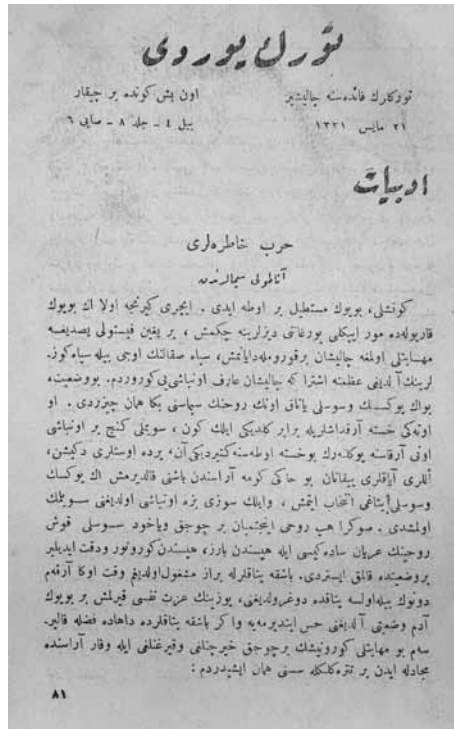 تورك يوردى
توركلرك فائده‌سنه چاليشير
اون بش كونده بر چيقار
٢١ مايس ١٣٣١
ييل ٤ ـ جلد ٨ ـ صايى ٦
ادبيات
حرب خاطره‌لرى
آناطولى سيمالرندن
كونشلى، بويوك مستطيل بر اوطه ايدى . ايچرى كيرنجه اولا اك بويوك
قاريوله‌ده مور ايپكلى يورغانى ديزلرينه چكمش ، بر يغين فيستولى يصديغه
مهابتلى اولمغه چاليشان بر قوروملە دايانمش، سياه صقالنك اوجى بيله سياه كوز
لرينك آلديغى عظمته اشتراك چاليشان عارف اونباشى يى كوروردم. بووضعيت،
بواك يوكسك وسوسلى ياتاق اونك روحنك سيماسنى بكا همان چيزردى . او
اوته‌كى خسته آرقداشلريله برابر كلديكى ايلك كون ، سويملى كنج بر اونباشى
اونى آرقاسنه يوكله‌رك بوخسته اوطه‌سنه كتيرديكى آن، يرده اوستلرى دكيشن،
اللرى آياقلرى ييقانان بو خاكى كومه آراسندن باشنى قالديرمش اك يوكسك
وسوسلى يتاغى انتخاب ايتمش ، وايلك سوزى بزه اونباشى اولديغنى سويلمك
اولمشدى . صوكرا هپ روحى اينجنميان بر چوجق وياخود سوسلى قوش
روحينك عريان ساده‌كيسى ايله هپسندن بارز، هپسندن كورونور ودقت ايديلير
بروضعيتده قالمق ايستردى. باشقه يتاقلرله براز مشغول اولديغم وقت اوكا آرقه‌م
دونوك بيله اولسه يتاقده دوغرولديغنى، يوزينك عزت نفسى قيرلمش بر بويوك
آدم وضعيتى آلديغنى حس ايتديرمه‌يه واكر باشقه يتاقلرده داهاده فضله قالير.
سه‌م بو مهابتلى كورونيشك بر چوجق خيرچنلغى وقيرغنلغى ايله وقار آراسنده
مجادله ايدن بر تتره‌كلكله سسنى همان ايشيدردم :
٨١